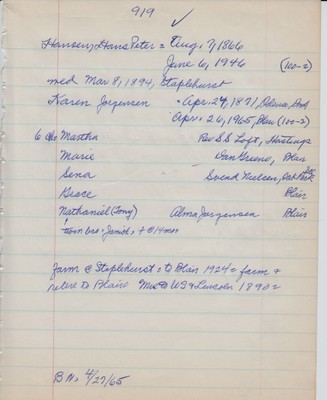 919 ✓
Hansen, Hans Peter = Aug. 7, 1866
June 6, 1946 (100-2)
med Mar 8, 1894, Staplehurst
Karen Jorgensen - Apr. 24, 1871, Odense,
Apr. 26, 1965, Blair (100-2)
6 chs Martha Rev S.S. Loft, Hastings
Marie Dan Greeno, Blair
Sena Svend Nielsen, Oak Park
Grace Blair
Nathaniel (Tony) Alma Jorgensen Blair
twin bro. Jamish, + @ 14 mos
farm @ Staplehurst = to Blair 1924 = farm +
retire to Blair to US + Lincoln 1890 =
B N, 4/27/65